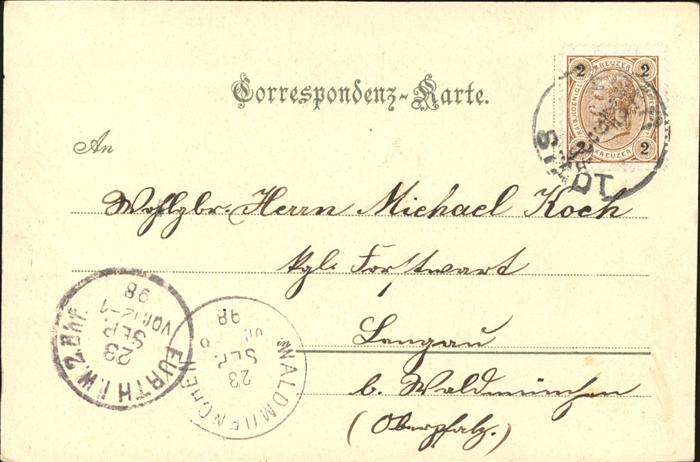 Correspondenz-Karte.
2 KREUZER 2
2 KREUZER 2
STADT
An
Wohlgbr. Herrn Michael Koch
kgl. Forstwart
Lengau
b. Waldmünchen
(Oberpfalz.)
FURTH I. W. 2 Bhf.
23
SEP
VOR 12-1
98
WALDMUENCHEN
23
SEP
98